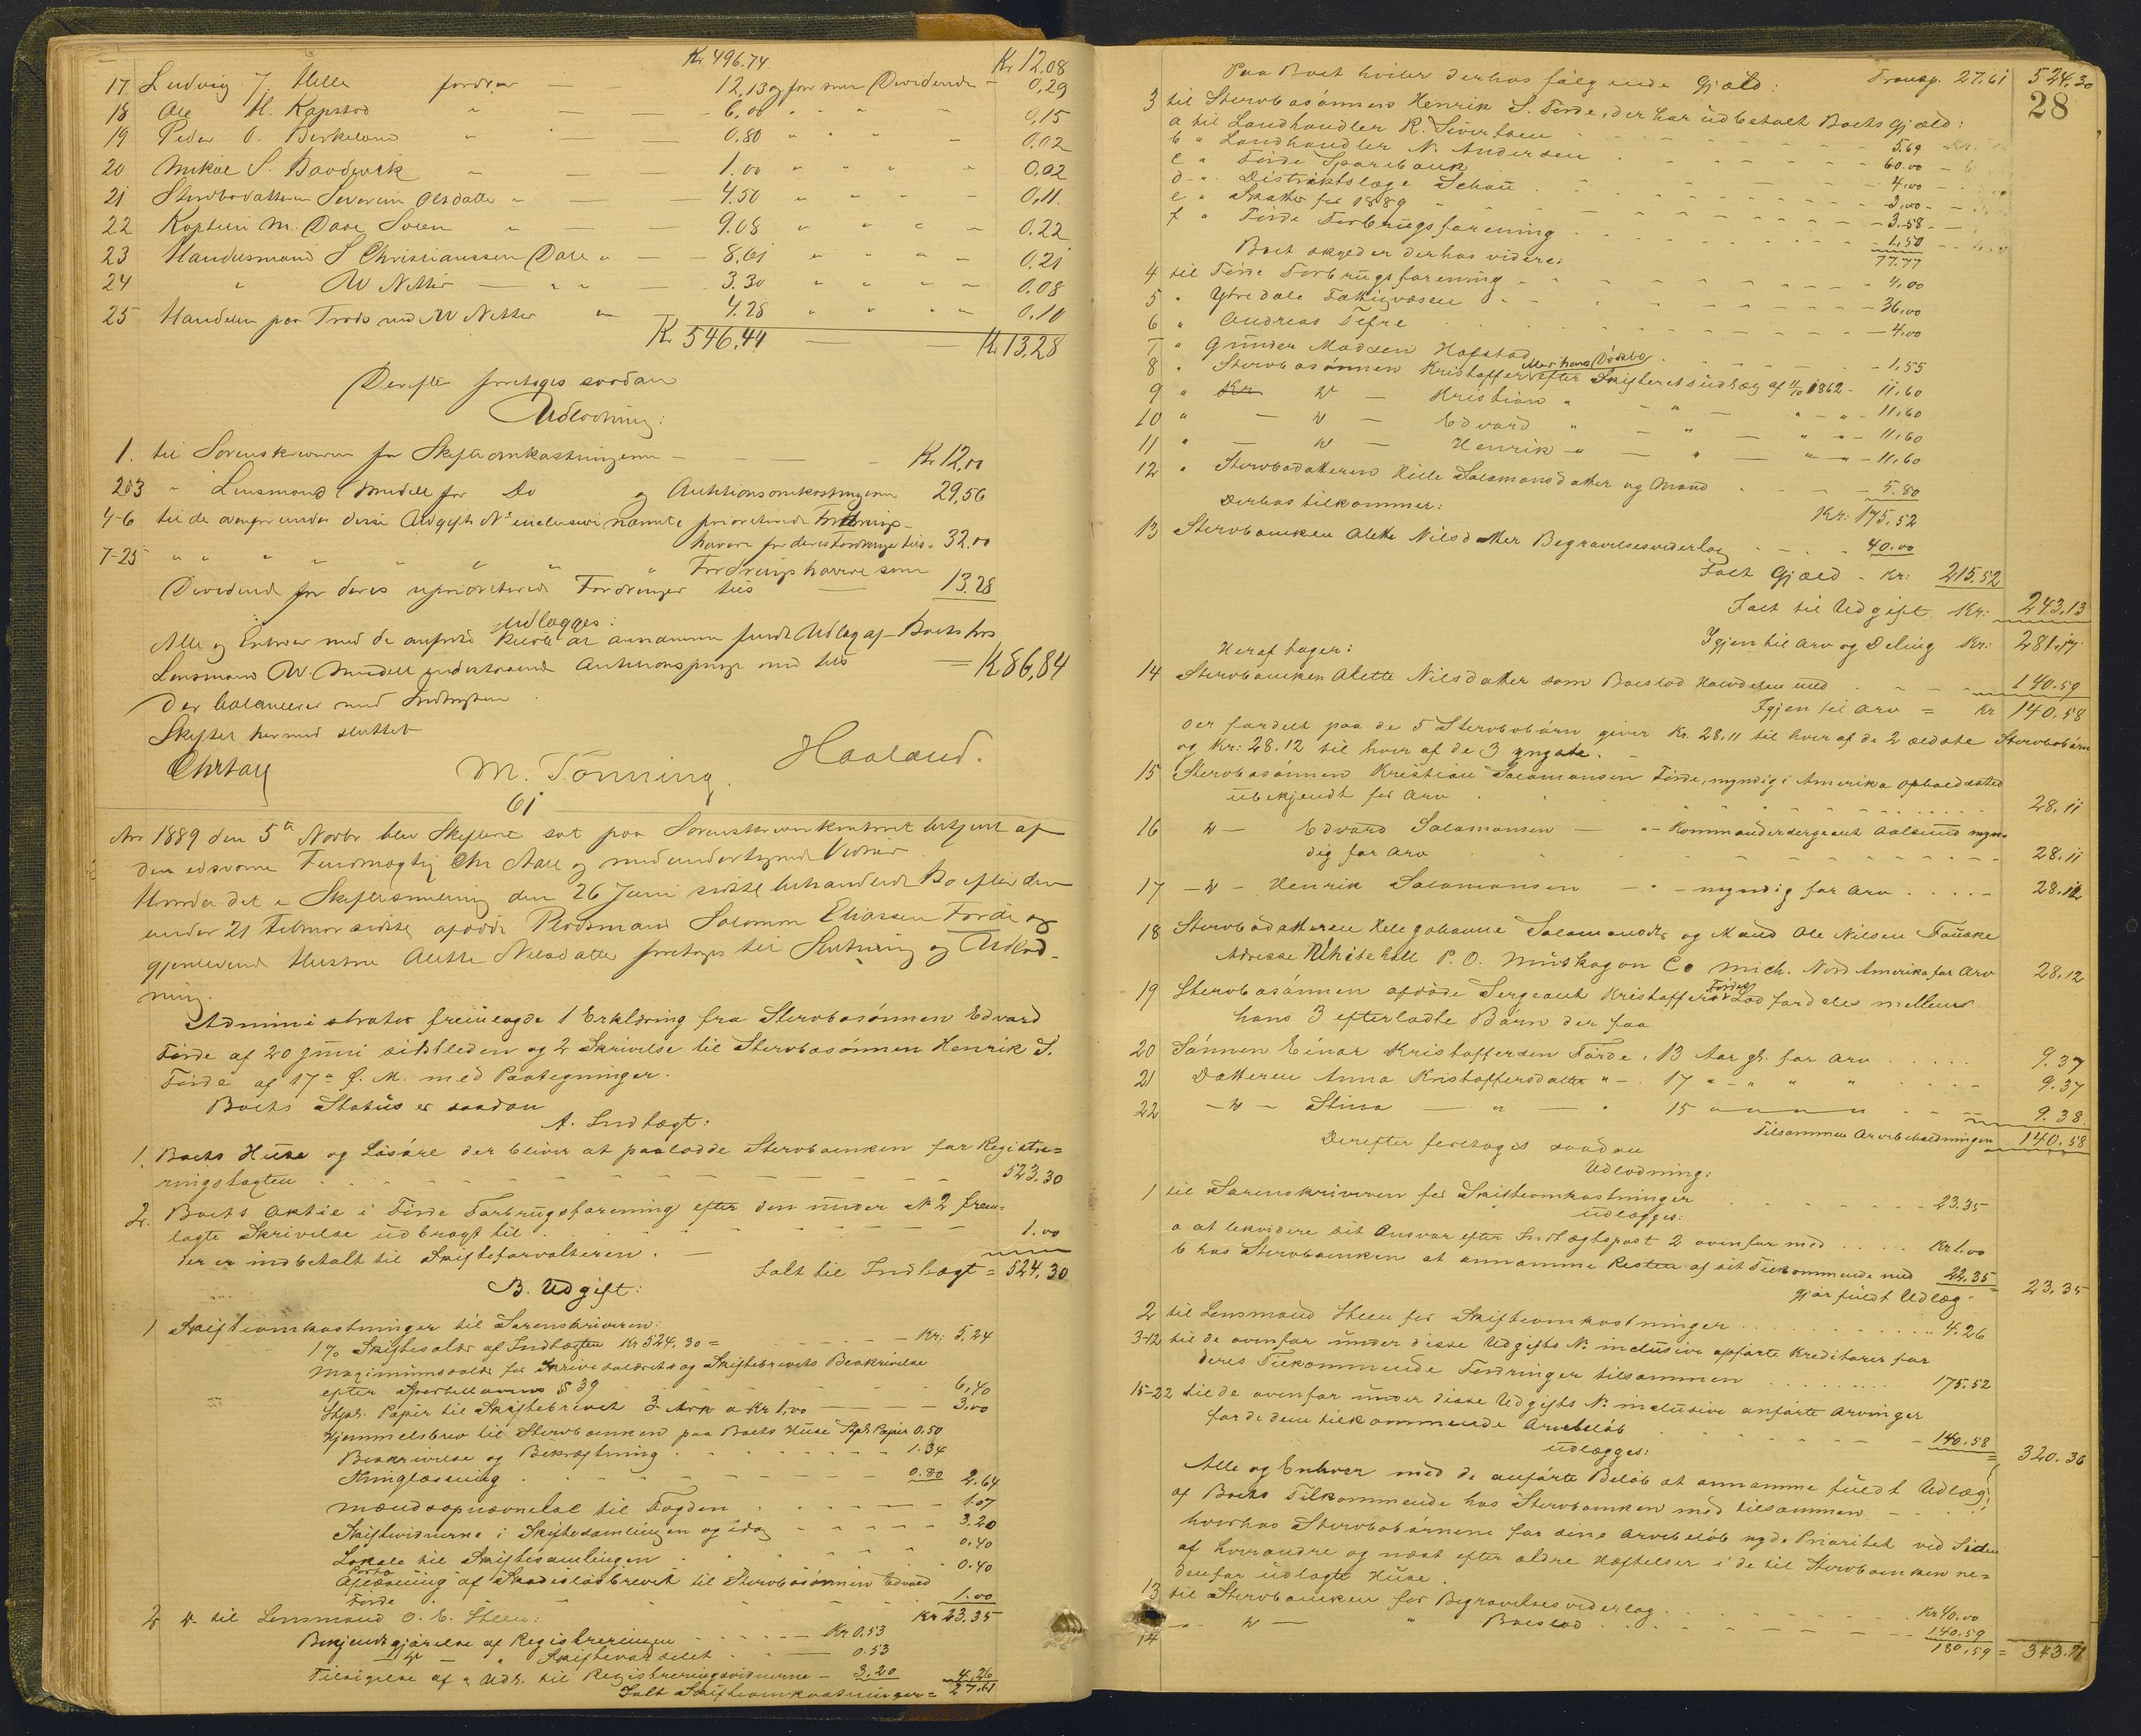 Kr 496.74 Kr 12,08
17 Ludvig J. Hille fordrer — 12,13 og for sin Dividende - 0,29
18 Ole H. Kapstad " — 6,00 " " " 0,15
19 Peder O. Birkeland " — 0.80 " " " 0.02
20 Mikal S. — 1.00 " " " 0,02
21 Stervbodatteren Severine Olsdatter " — 4.50 " " " 0,11.
22 Kaptein M. Daae — 9.08 " " " 0.22
23 Handelsmand S Christianssen Dale " — 8,61 " " " 0.21
24 " W Nitter — " " — 3.30 " " " 0.08
25 Handelen paa Trods ved W Nitter " — 4.28 " " " 0.10
Kr 546,44 — Kr 13,28
Derefter foretoges saadan
Udlodning:
1. til Sorenskriveren for Skifteomkostningerne — Kr 12,00
2 o 3 " Lensmand Mindell for Do og Auktionsomkostningerne 29,56
4-6 til de ovenfor under disse Udgifts No inclusive nævnte prioriterede Fordrings-
havere for deres Fordringer tils. 32,00
7-25 " " " " " " " Fordringshavere som
Dividende for deres uprioriterede Fordringer tils — 13.28
udlægges:
Alle og Enhver med de anførte Beløb at annamme fuldt Udlæg af Boets hos
Lensmand W. Mindell indestaaende Auktionspenge med tils — Kr 86,84
der balancerer med Indtægten.
Skiftet hermed sluttet
Chr Aall M. Tonning. Haaland.
61
Aar 1889 den 5te Novbr blev Skifteret sat paa Sorenskriverkontoret betjent af
den edsvorne Fuldmægtig Chr Aall og medundertegnede Vidner
Hvorda det i Skiftesamling den 26 Juni sidstl behandlede Bo efter den
under 21 Februar sidstl afdøde Pladsmand Salomon Eliassen Førde og
gjenlevende Hustru Alette Nilsdatter foretoges til Slutning og Udlod-
ning.
Administrator fremlagde 1 Erklæring fra Stervbosønnen Edvard
Førde af 20 Juni sidstleden og 2 Skrivelse til Stervbosønnen Henrik S.
Førde af 17de f. M. med Paategninger.
Boets Status er saadan
A. Indtægt:
1. Boets Huse og Løsøre der bliver at paalodde Stervboenken for Registre=
ringstagten 523,30
2. Boets Aktie i Førde Forbrugsforening efter den under No 2 frem=
lagte Skrivelse udbragt til 1.00
der er indbetalt til Skifteforvalteren. —
Ialt til Indtægt = 524,30
B. Udgift:
1 Skifteomkostninger til Sorenskriveren:
1 % Skiftesalær af Indtægten Kr 524,30 = Kr: 5,24
Maximumssalær for Skrivesalærets og Skiftebrevets Beskrivelse
efter Sportellovens § 39 6,40
Stpl. Papir til Skiftebrevet 3 Ark a Kr 1,00 — 3,00
Hjemmelsbrev til Stervboenken paa Boets Huse Stpl. Papir 0.50
Beskrivelse og Bekræftning 1.34
Thinglæsning 0.80 2.64
Mændsopnævnelse til Fogden 1.07
Skiftevidnerne i Skiftesamlingen og idag 3.20
Lokale til Skiftesamlingen 0,40
Porto 0.40
Afløsning af Skadesløsbrevet til Stervbosønnen Edvard
Førde 1.00
Kr 23.35
2 til Lensmand O. C. Steen:
Bekjendtgjørelse af Registreringen — Kr 0.53
" Skifteværdslet 0.53
Tilsigelse af " Udl. til Registreringsvidnerne — 3,20 4,26
Ialt Skifteomkostninger = 27,61
28
Paa Boet hviler derhos følgende Gjæld: Transp. 27.61 524,30
3 til Stervbosønnen Henrik S. Førde, der har udbetalt Boets Gjæld:
a til Landhandler R. Sivertsen 5.69
b " Landhandler N. Andersen 60.00
c " Førde Sparebank 4,00
d " Distriktslæge Schou 3,00
e " Skatter for 1889 3.58
f " Førde Forbrugsforening 1,50
77.77
Boet skylder derhos videre:
4 til Førde Forbrugsforening 4,00
5 " Ytredale Fattigvæsen 36,00
6 " Andreas Tefre 4.00
7 " Gunder Madsen Hafstad 1,55
8 " Stervbosønnen Kristoffer eller hans Dødsbo efter Skifteretsudlæg af 11/10 1862 - 11.60
9 " — " — Kristian " — " — 11.60
10 " — " — Edvard " — " — 11.60
11 " — " — Henrik " — " — 11.60
12 " Stervbodatteren Helle Salamonsdatter og Mand 5.80
Kr: 175.52
Derhos tilkommer:
13 Stervboenken Alette Nilsdatter Begravelsesvederlag 40.00
Ialt Gjæld - Kr: 215.52
Ialt til Udgift Kr: 243,13
Igjen til Arv og Deling Kr: 281.17
Heraf tager:
14 Stervboenken Alette Nilsdatter som Boeslod Halvdelen med 140.59
Igjen til Arv = Kr 140.58
der fordelt paa de 5 Stervbobørn giver Kr. 28,11 til hver af de 2 ældste Stervbobørn
og Kr: 28.12 til hver af de 3 yngste.
15 Stervbosønnen Kristian Salamonsen Førde, myndig i Amerika Opholdssted
ubekjendt for Arv 28,11
16 " — Edvard Salamonsen — " — Kommandersergeant Aalesund myn=
dig for Arv 28,11
17 — " — Henrik Salamonsen — " — myndig for Arv 28.12
18 Stervbodatteren Hele Johanne Salamonsdtr og Mand Ole Nilsen Fauske
Adresse Whitehall P. O. Muskagon Co Mich. Nord Amerika for Arv 28.12
19 Stervbosønnen afdøde Sergeant Kristoffer Førdes Lod fordeles mellem
hans 3 efterladte Børn der faa
20 Sønnen Einar Kristoffersen Førde, 13 Aar gl. for Arv 9.37
21 Datteren Anna Kristoffersdatter " — 17 " — " " " 9.37
22 — " — Stina — " — " 15 " " " " 9.38.
Tilsammen Arvebeholdningen 140.58
Derefter foretoges saadan
Udlodning:
1 til Sorenskriveren for Skifteomkostninger 23.35
udlægges:
a at lekvidere sit Ansvar efter Indtægtspost 2 ovenfor med Kr 1.00
b hos Stervboenken at annamme Resten af sit Tilkommende med 22.35
gjør fuldt Udlæg - 23.35
2 til Lensmand Steen for Skifteomkostninger 4.26
3-12 til de ovenfor under disse Udgifts No inclusive opførte Kreditorer for
deres Tilkommende Fordringer tilsammen 175.52
15-22 til de ovenfor under disse Udgifts No inclusive anførte Arvinger
for de dem tilkommende Arvebeløb 140.58
320.36
udlægges:
Alle og Enhver med de anførte Beløb at annamme fuldt Udlæg
af Boets Tilkommende hos Stervboenken med tilsammen
hvorhos Stervbobørnene for sine Arvebeløb nyde Prioritet ved Siden
af hverandre og næst efter ældre Hæftelser i de til Stervboenken ne=
denfor udlagte Huse.
13 til Stervboenken for Begravelsesvederlag Kr 40.00
14 — " — " — " Boeslod 140.59
180,59 = 343.71